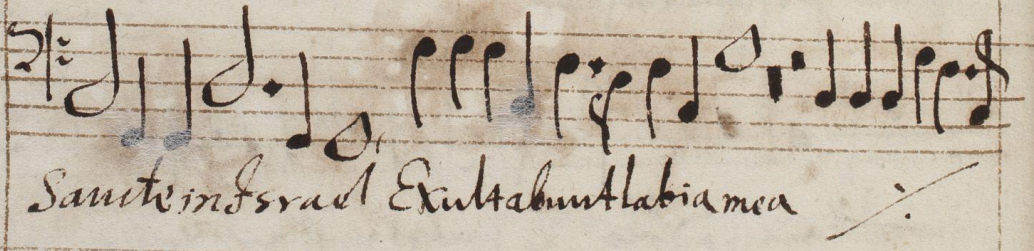 Sancte in Israel Exultabunt labia mea ⁒